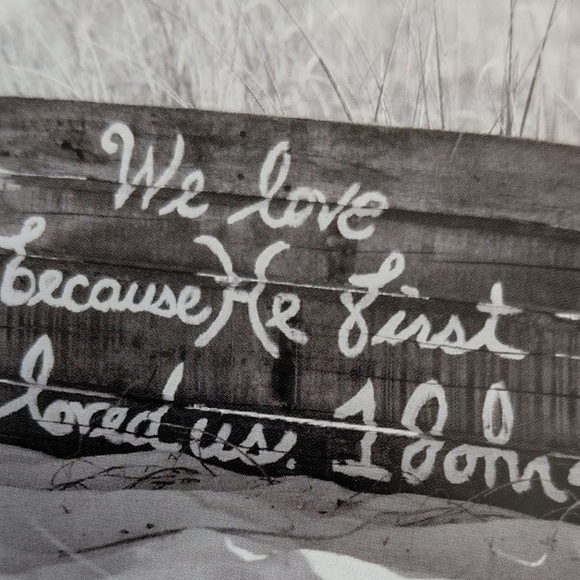 We love
because He first
loved us. 1 John